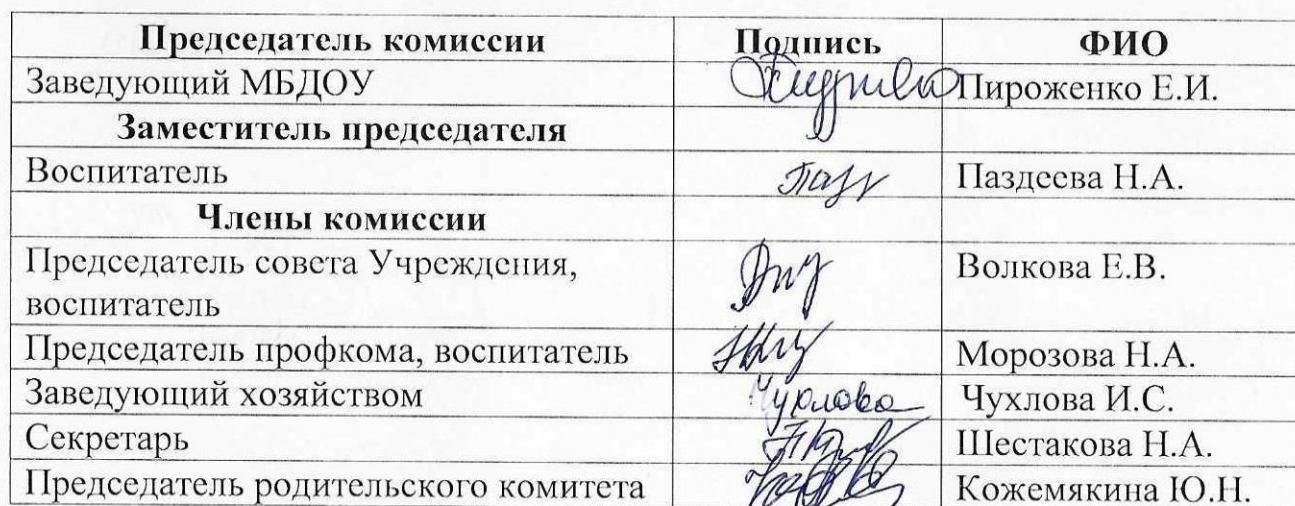 Председатель комиссии Подпись ФИО
Заведующий МБДОУ Пироженко Е.И.
Заместитель председателя
Воспитатель Пазд Паздеева Н.А.
Члены комиссии
Председатель совета Учреждения, Волкова Е.В.
воспитатель
Председатель профкома, воспитатель Морозова Н.А.
Заведующий хозяйством Чухлова Чухлова И.С.
Секретарь Шестакова Н.А.
Председатель родительского комитета Кожемякина Ю.Н.